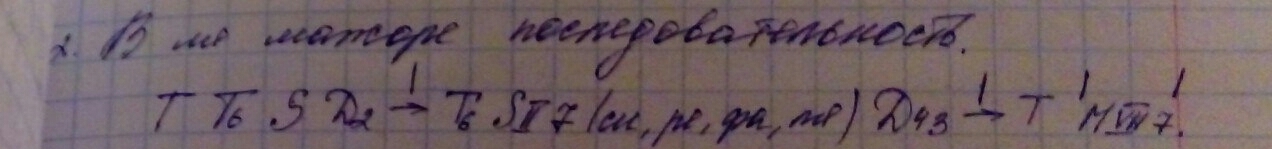 2. В ля мажоре последовательность.
Т Т6 S D2 → Т6 SII7 (си, ре, фа, ля) D43 → Т МVII7.